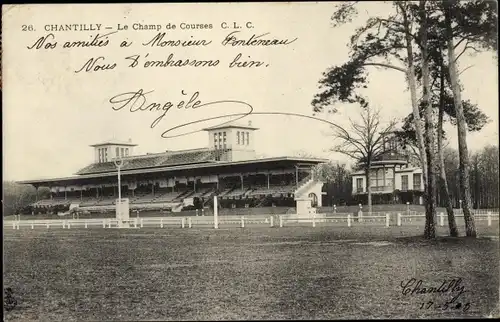 26. CHANTILLY – Le Champ de Courses C. L. C.
Nos amitiés à Monsieur Fonteneau
Nous l'embrassons bien.
Angèle
Chantilly